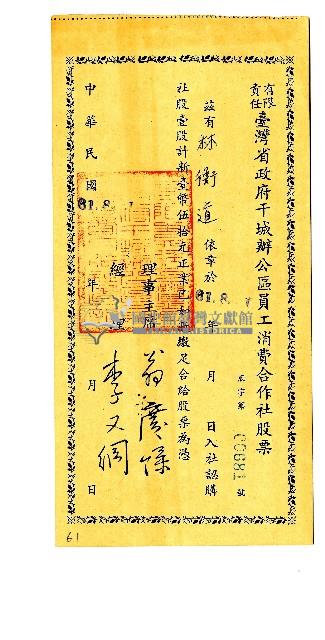 有限責任臺灣省政府干城辦公區員工消費合作社股票
社字第00681號
茲有林衡道依章於81.8.1年月日入社認購
社股壹股計新臺幣伍拾元正業已繳足合給股票為憑
理事主席
經理
中華民國81.8.1年月日
國史館臺灣文獻館
61